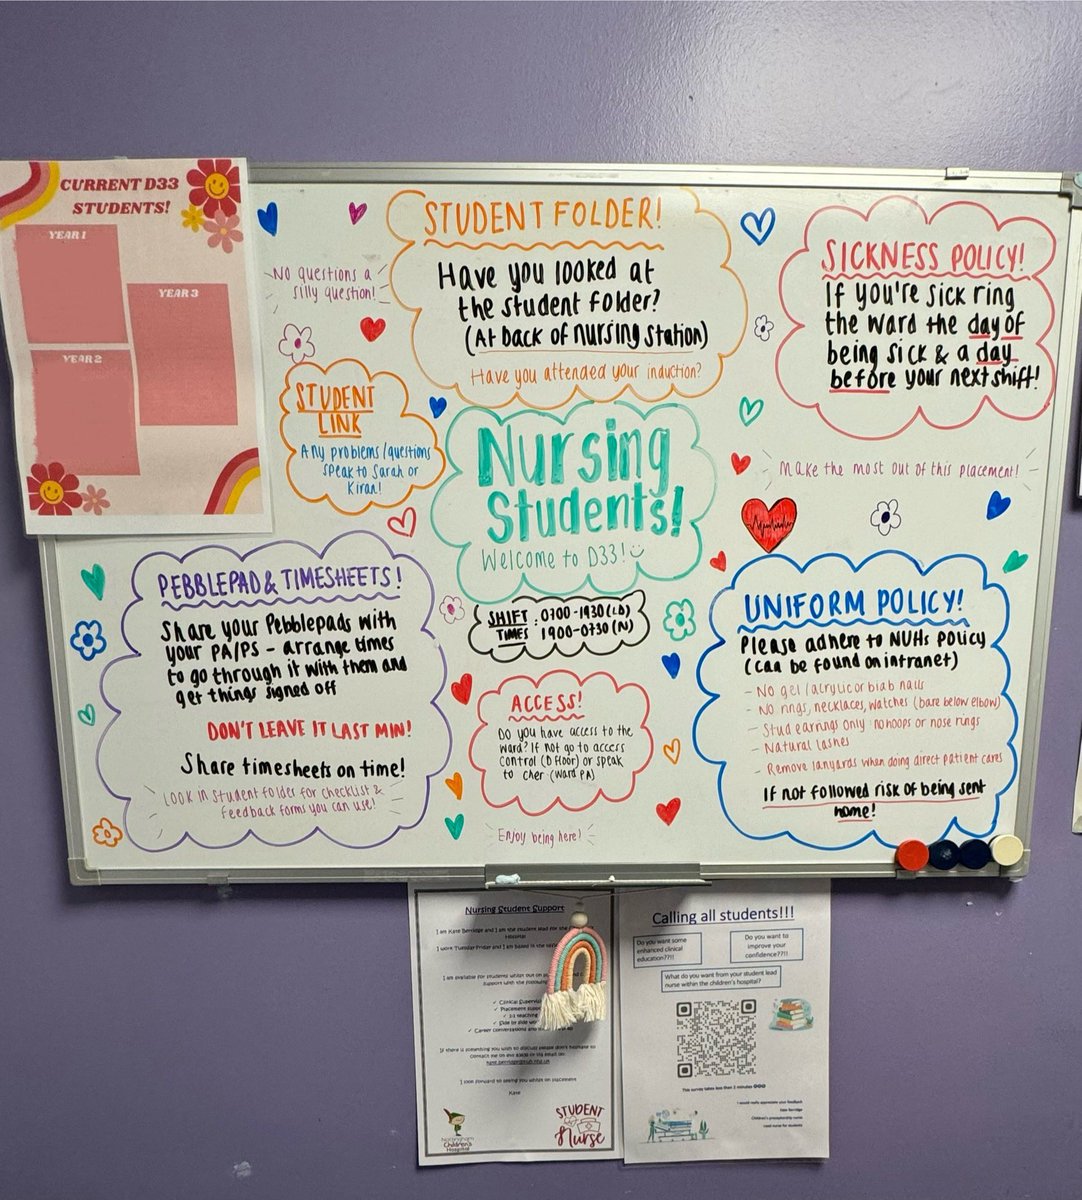 CURRENT D33
STUDENTS!
YEAR 1
YEAR 3
YEAR 2
No questions a
silly question!
STUDENT FOLDER!
Have you looked at
the student folder?
(At back of nursing station)
Have you attended your induction?
SICKNESS POLICY!
If you're sick ring
the ward the day of
being sick & a day
before your next shift!
STUDENT
LINK
Any problems/questions
speak to Sarah or
Kiran!
Nursing
Students!
Welcome to D33!
Make the most out of this placement!
PEBBLEPAD & TIMESHEETS!
Share your Pebblepads with
your PA/PS - arrange times
to go through it with them and
get things signed off
DON'T LEAVE IT LAST MIN!
Share timesheets on time!
Look in student folder for checklist &
feedback forms you can use!
SHIFT : 0700-1930 (LD)
TIMES 1900-0730 (N)
ACCESS!
Do you have access to the
ward? If not go to access
control (D floor) or speak
to Cher (Ward PA)
Enjoy being here!
UNIFORM POLICY!
Please adhere to NUHs policy
(can be found on intranet)
- No gel/acrylic or biab nails
- No rings, necklaces, watches (bare below elbow)
- Stud earrings only no hoops or nose rings
- Natural lashes
- Remove lanyards when doing direct patient cares
If not followed risk of being sent
home!
Nursing Student Support
I am Kate Berridge and I am the student lead for the
Hospital
I work Tuesday-Friday and I am based in the
I am available for students whilst out on
support with the following
✓ Clinical Supervis
✓ Placement supp
✓ 1:1 teaching
✓ Side by side wo
✓ Career conversations and
If there is something you wish to discuss please don't hesitate to
contact me on
I look forward to seeing you whilst on placement
Kate
Nottingham
Children's
Hospital
STUDENT
Nurse
Calling all students!!!
Do you want some
enhanced clinical
education??!!
Do you want to
improve your
confidence??!!
What do you want from your student lead
nurse within the children's hospital?
This survey takes less than 2 minutes
I would really appreciate your feedback
Kate Berridge
Children's preceptorship nurse
Lead nurse for students